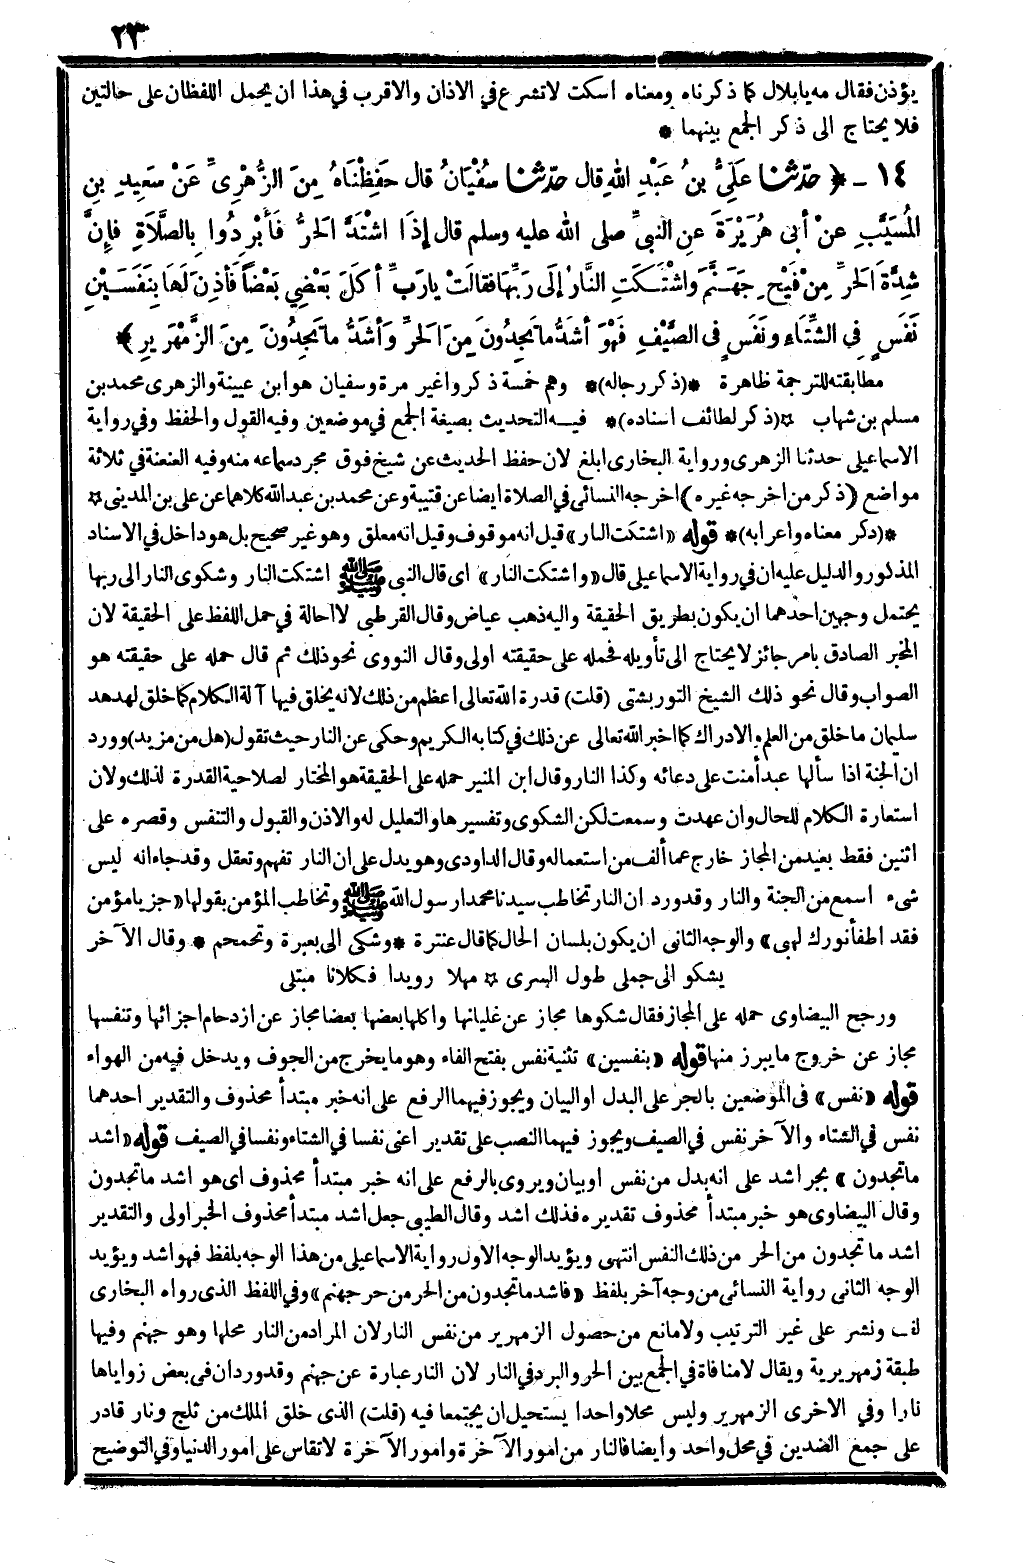 ٢٣
يؤذن فقال مه يابلال كما ذكرناه ومعناه اسكت لاتشرع في الاذان والاقرب في هذا ان يحمل اللفظان على حالتين
فلا يحتاج الى ذكر الجمع بينهما *
١٤ - ﴿ حدّثنا عَلِيُّ بنُ عَبْدِ اللهِ قال حدّثنا سُفْيَانُ قال حَفِظْنَاهُ مِنَ الزُّهْرِىِّ عَنْ سَعِيدِ بنِ
المُسَيَّبِ عنْ أبى هُرَيْرَةَ عنِ النبىِّ صلى الله عليه وسلم قال إذَا اشْتَدَّ الحَرُّ فَأَبْرِدُوا بِالصَّلَاةِ فإنَّ
شِدَّةَ الحَرِّ مِنْ فَيْحِ جَهَنَّمَ وَاشْتَكَتِ النَّارُ إلَى رَبِّهَا فقالَتْ يارَبِّ أكَلَ بَعْضِي بَعْضاً فَأذِنَ لَهَا بِنَفَسَيْنِ
نَفَسٍ فِي الشِّتَاءِ ونَفَسٍ فى الصَّيْفِ فَهْوَ أشَدُّ ماتَجِدُونَ مِنَ الحَرِّ وَأشَدُّ ماتَجِدُونَ مِنَ الزَّمْهَرِيرِ ﴾
مطابقته للترجمة ظاهرة *(ذكر رجاله)* وهم خمسة ذكروا غير مرة وسفيان هو ابن عيينة والزهرى محمد بن
مسلم بن شهاب *(ذكر لطائف اسناده)* فيه التحديث بصيغة الجمع في موضعين وفيه القول والحفظ وفي رواية
الاسماعيلى حدثنا الزهرى ورواية البخارى ابلغ لان حفظ الحديث عن شيخ فوق مجرد سماعه منه وفيه العنعنة في ثلاثة
مواضع (ذكر من اخرجه غيره) اخرجه النسائى في الصلاة ايضا عن قتيبة وعن محمد بن عبدالله كلاهما عن على بن المدينى *
*(ذكر معناه واعرابه)* قوله «اشتكت النار» قيل انه موقوف وقيل انه معلق وهو غير صحيح بل هو داخل في الاسناد
المذكور والدليل عليه ان في رواية الاسماعيلى قال «واشتكت النار» اى قال النبى ﷺ اشتكت النار وشكوى النار الى ربها
يحتمل وجهين احدهما ان يكون بطريق الحقيقة واليه ذهب عياض وقال القرطبى لا احالة في حمل اللفظ على الحقيقة لان
المخبر الصادق بامر جائز لا يحتاج الى تأويله فحمله على حقيقته اولى وقال النووى نحو ذلك ثم قال حمله على حقيقته هو
الصواب وقال نحو ذلك الشيخ التوربشتى (قلت) قدرة الله تعالى اعظم من ذلك لانه يخلق فيها آلة الكلام كما خلق لهدهد
سليمان ماخلق من العلم والادراك كما اخبر الله تعالى عن ذلك في كتابه الكريم وحكى عن النار حيث تقول (هل من مزيد) وورد
ان الجنة اذا سألها عبد أمنت على دعائه وكذا النار وقال ابن المنير حمله على الحقيقة هو المختار لصلاحية القدرة لذلك ولان
استعارة الكلام للحال وان عهدت وسمعت لكن الشكوى وتفسيرها والتعليل له والاذن والقبول والتنفس وقصره على
اثنين فقط بعيد من المجاز خارج عما ألف من استعماله وقال الداودى وهو يدل على ان النار تفهم وتعقل وقد جاء انه ليس
شىء اسمع من الجنة والنار وقد ورد ان النار تخاطب سيدنا محمدا رسول الله ﷺ وتخاطب المؤمن بقولها «جز يامؤمن
فقد اطفأ نورك لهبى» والوجه الثانى ان يكون بلسان الحال كما قال عنترة * وشكى الى بعبرة وتحمحم * وقال الآخر
يشكو الى جملى طول السرى * مهلا رويدا فكلانا مبتلى
ورجح البيضاوى حمله على المجاز فقال شكوها مجاز عن غليانها واكلها بعضها بعضا مجاز عن ازدحام اجزائها وتنفسها
مجاز عن خروج مايبرز منها قوله «بنفسين» تثنية نفس بفتح الفاء وهو مايخرج من الجوف ويدخل فيه من الهواء
قوله «نفس» في الموضعين بالجر على البدل او البيان ويجوز فيهما الرفع على انه خبر مبتدأ محذوف والتقدير احدهما
نفس في الشتاء والآخر نفس في الصيف ويجوز فيهما النصب على تقدير اعنى نفسا في الشتاء ونفسا في الصيف قوله «اشد
ماتجدون» بجر اشد على انه بدل من نفس او بيان ويروى بالرفع على انه خبر مبتدأ محذوف اى هو اشد ماتجدون
وقال البيضاوى هو خبر مبتدأ محذوف تقديره فذلك اشد وقال الطيبى جعل اشد مبتدأ محذوف الخبر اولى والتقدير
اشد ماتجدون من الحر من ذلك النفس انتهى ويؤيد الوجه الاول رواية الاسماعيلى من هذا الوجه بلفظ فهو اشد ويؤيد
الوجه الثانى رواية النسائى من وجه آخر بلفظ «فاشد ماتجدون من الحر من حر جهنم» وفي اللفظ الذى رواه البخارى
لف ونشر على غير الترتيب ولا مانع من حصول الزمهرير من نفس النار لان المراد من النار محلها وهو جهنم وفيها
طبقة زمهريرية ويقال لا منافاة في الجمع بين الحر والبرد في النار لان النار عبارة عن جهنم وقد ورد ان في بعض زواياها
نارا وفي الاخرى الزمهرير وليس محلا واحدا يستحيل ان يجتمعا فيه (قلت) الذى خلق الملك من ثلج ونار قادر
على جمع الضدين في محل واحد وايضا فالنار من امور الآخرة وامور الآخرة لاتقاس على امور الدنيا وفي التوضيح